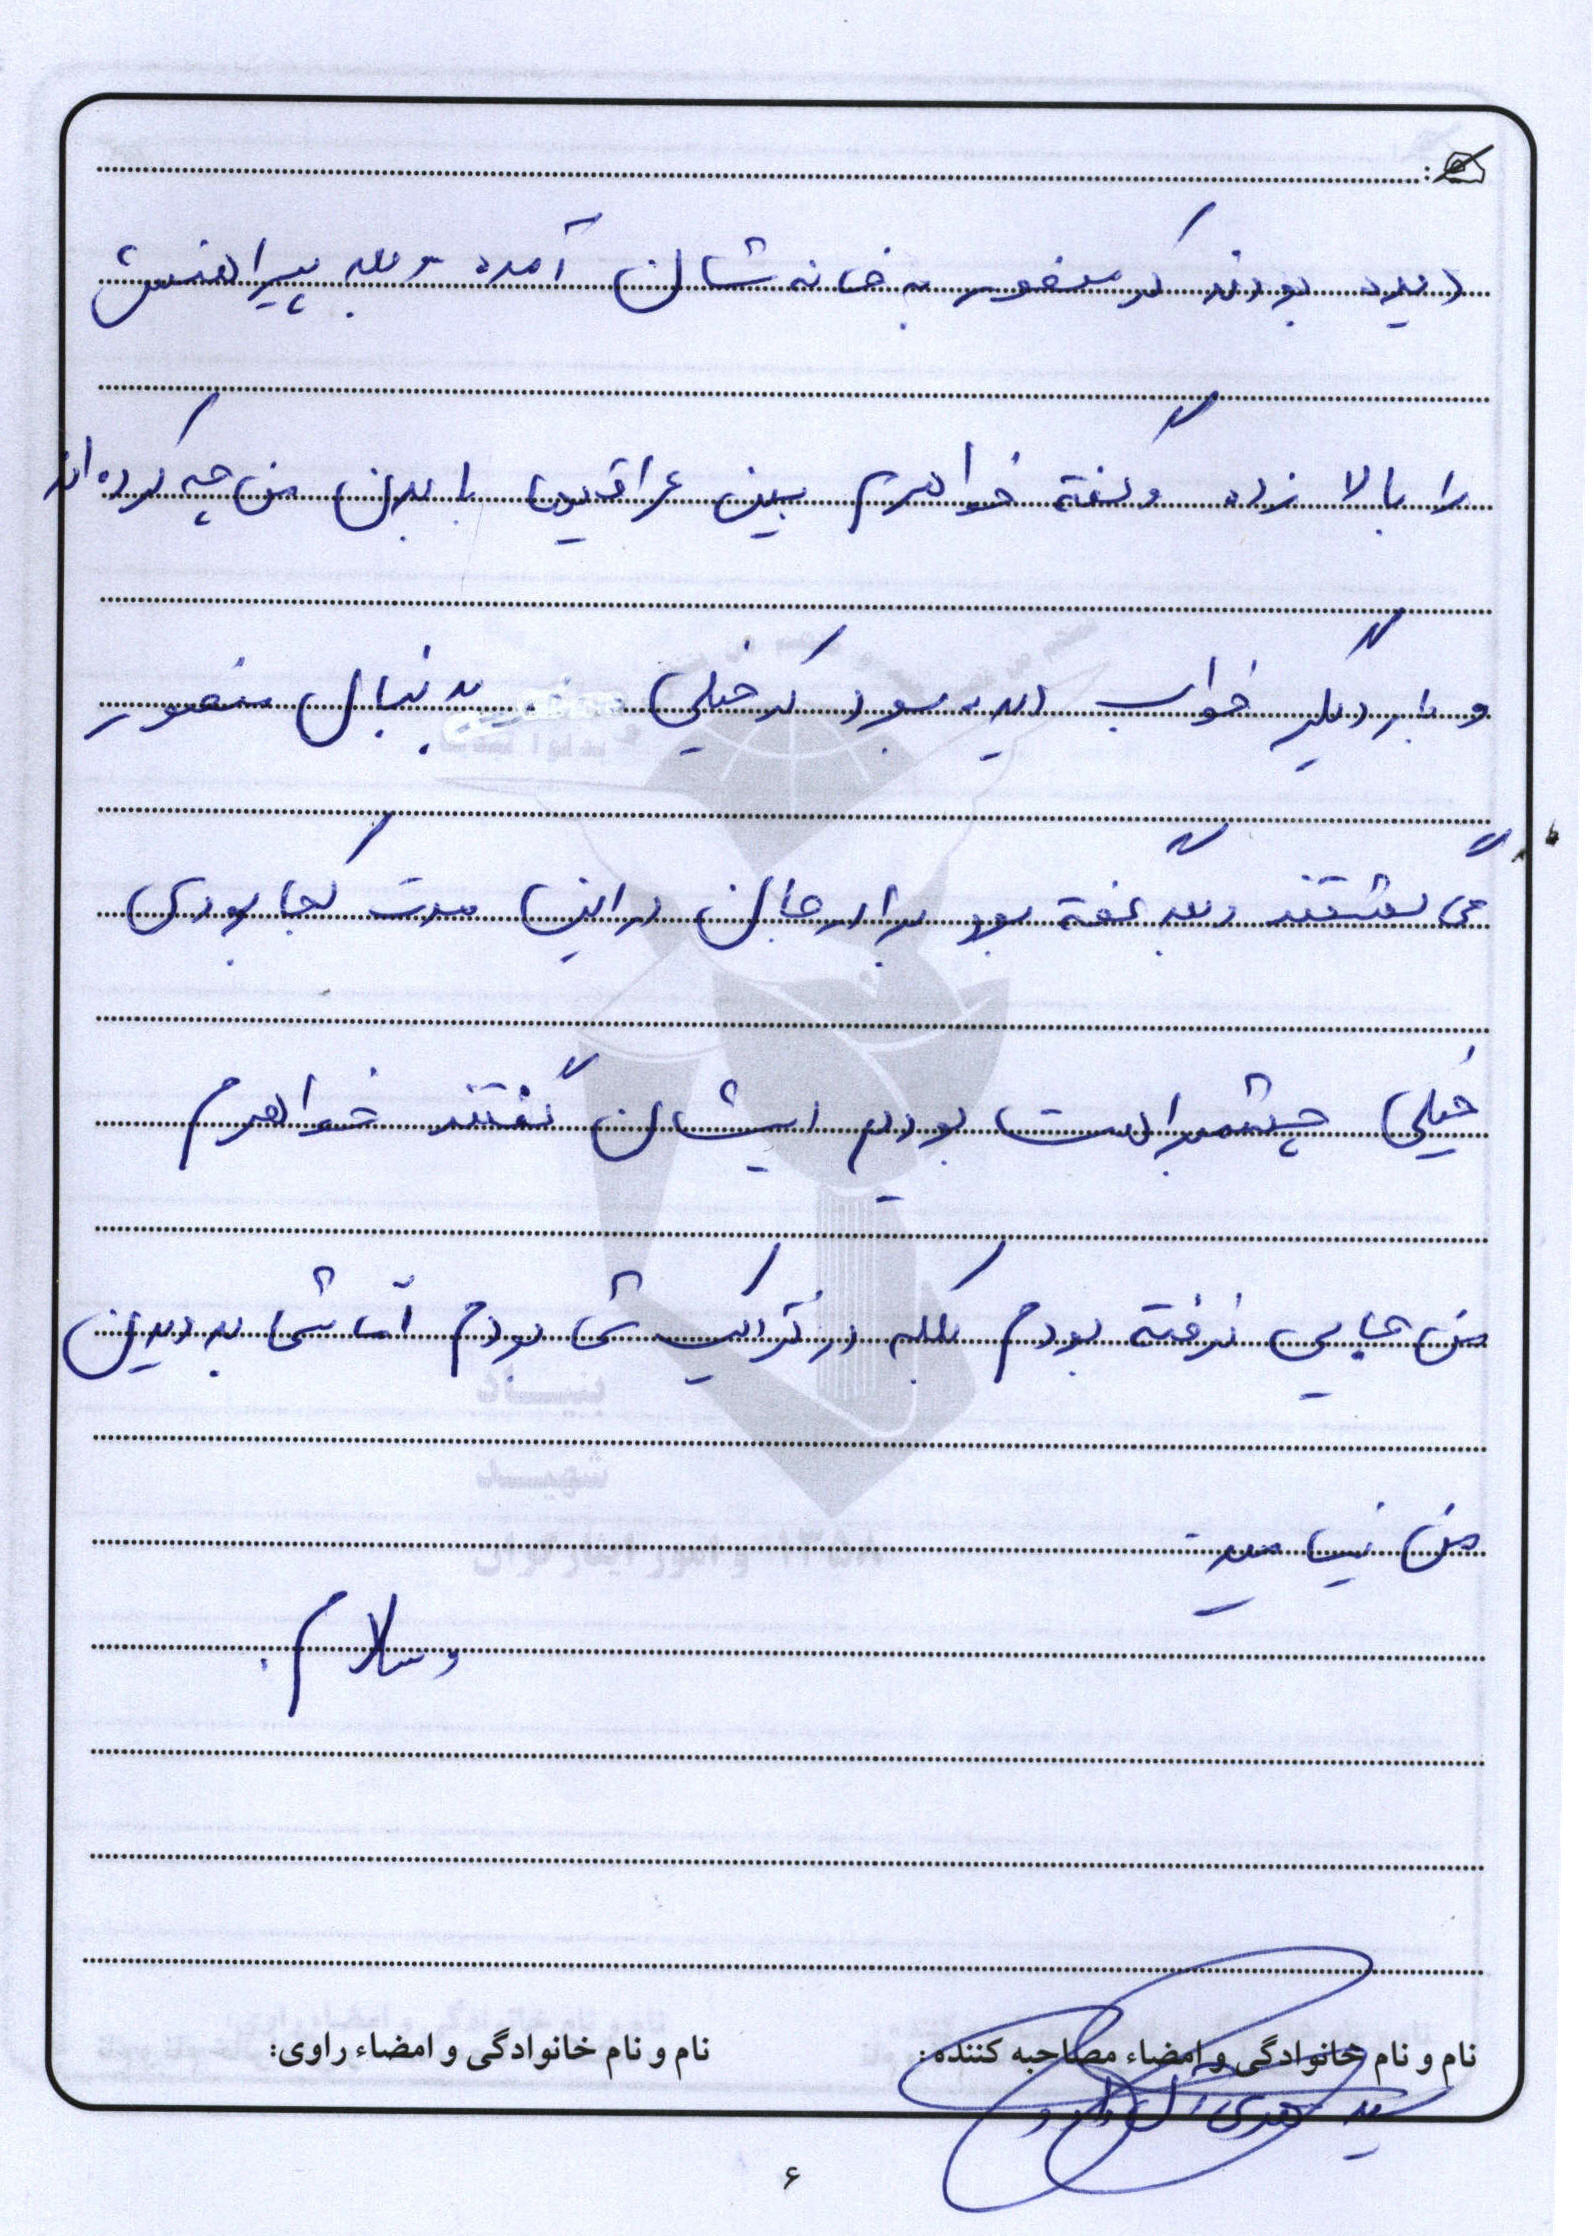 دیده بودند که منصور به خانه شان آمده و یه پیراهنش
را بالا زده و گفته خواهرم ببین عراقیها با بدن من چه کرده اند
و بار دیگر خواب دیده بود که خیلی بدنبال منصور
می گشتند و گفته بود برادر جان در این مدت کجا بودی
خیلی چشم براهت بودیم ایشان گفتند خواهرم
من جایی نرفته بودم بلکه در نزدیک شما بودم اما شما به دیدن
من نیامدید
والسلام.
نام و نام خانوادگی و امضاء مصاحبه کننده:
نام و نام خانوادگی و امضاء راوی:
سید مهدی
۶